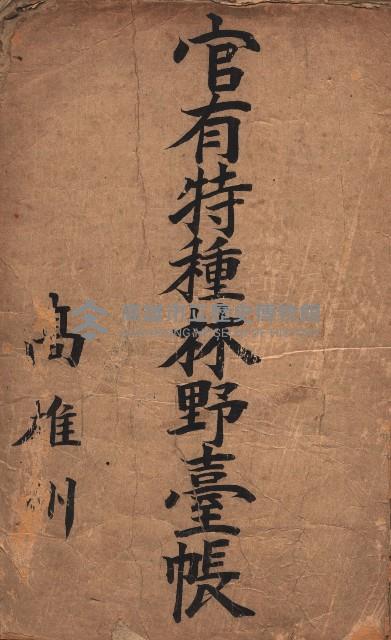 官有特種林野臺帳
高雄州
高雄市立歷史博物館
KAOHSIUNG MUSEUM OF HISTORY